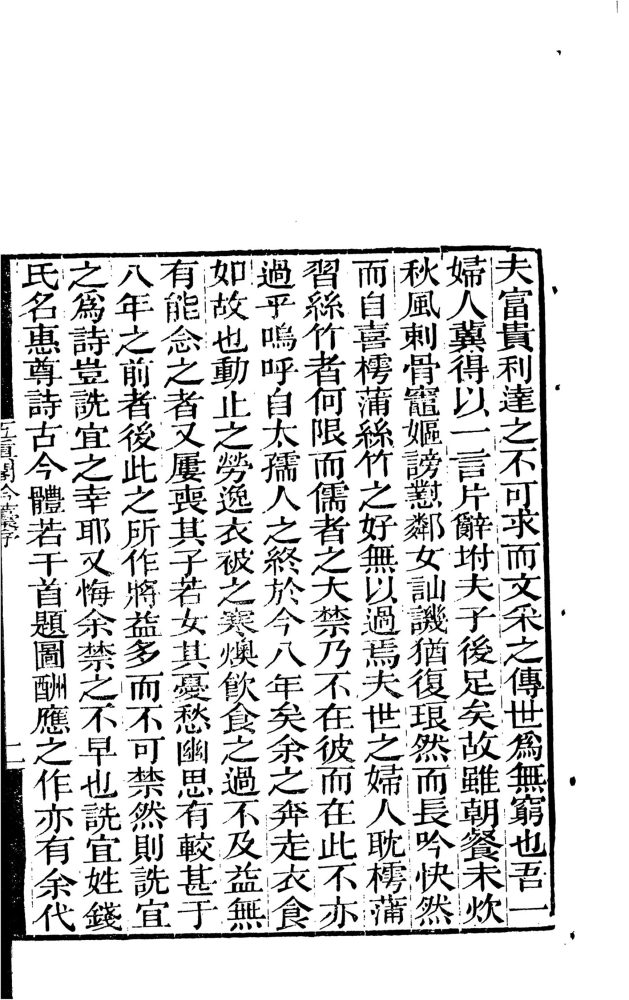 夫富貴利達之不可求而文采之傳世爲無窮也吾一
婦人冀得以一言片辭坿夫子後足矣故雖朝餐未炊
秋風刺骨竈嫗謗懟鄰女訕譏猶復琅然而長吟快然
而自喜樗蒲絲竹之好無以過焉夫世之婦人耽樗蒲
習絲竹者何限而儒者之大禁乃不在彼而在此不亦
過乎嗚呼自太孺人之終於今八年矣余之奔走衣食
如故也動止之勞逸衣被之寒燠飮食之過不及益無
有能念之者又屢喪其子若女其憂愁幽思有較甚于
八年之前者後此之所作將益多而不可禁然則詵宜
之爲詩豈詵宜之幸耶又悔余禁之不早也詵宜姓錢
氏名惠尊詩古今體若干首題圖酬應之作亦有余代
五眞閣吟藁序
二